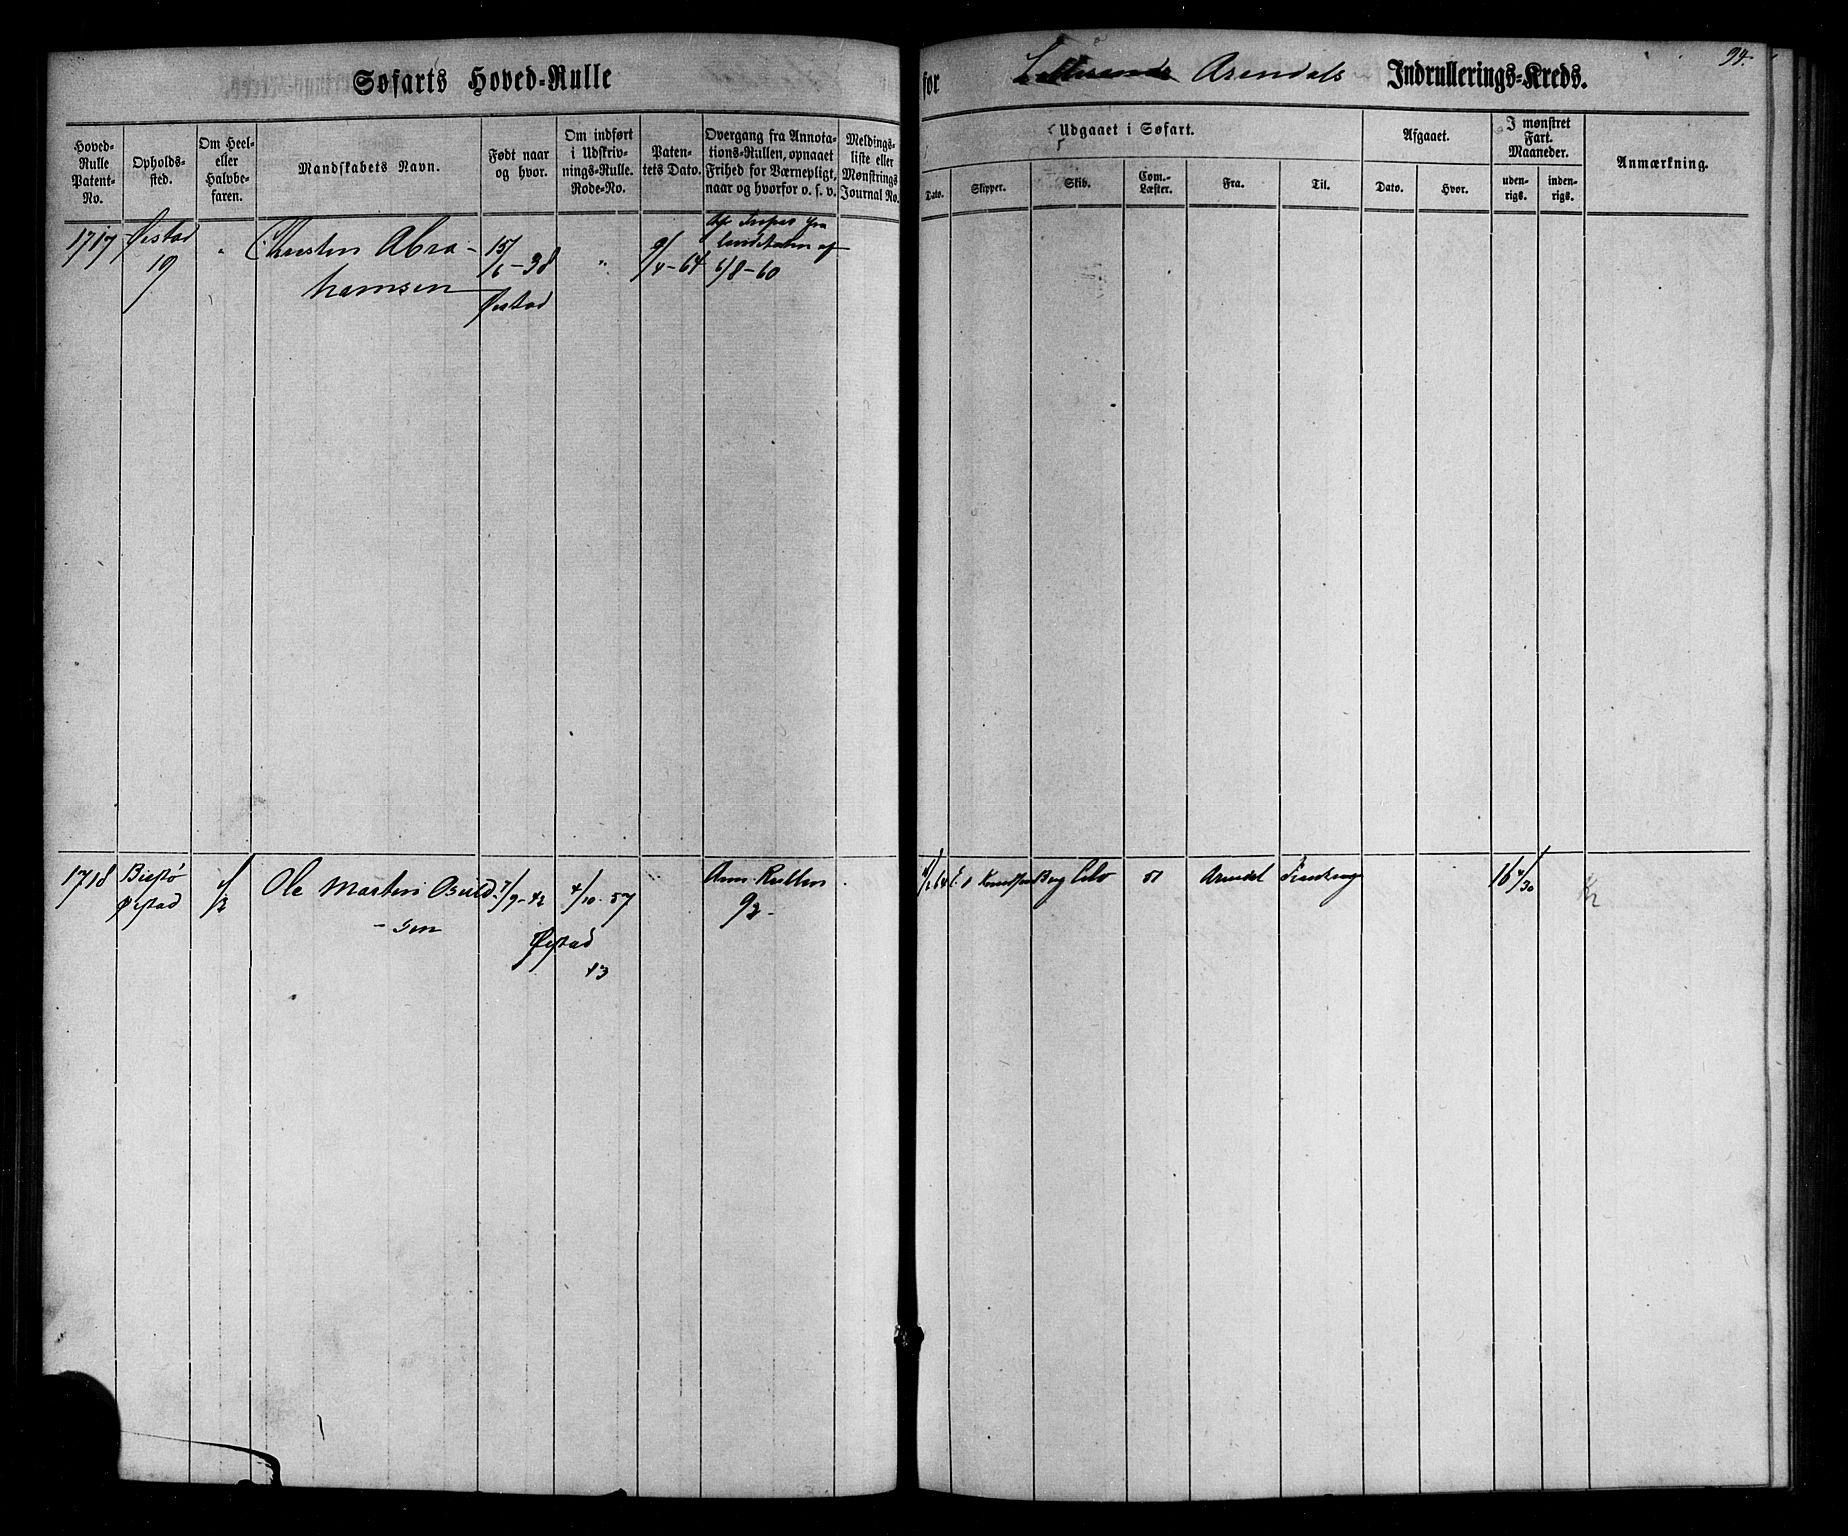 Søfarts Hoved-Rulle
for Arendals Indrullerings-Kreds.
94.
Hoved-Rulle Patent-No.
Opholds-sted.
Om Heel- eller Halvbe-faren.
Mandskabets Navn.
Født naar og hvor.
Om indført i Udskriv-nings-Rulle. Rode-No.
Paten-tets Dato.
Overgang fra Annota-tions-Rullen, opnaaet Frihed for Værnepligt, naar og hvorfor o. s. v.
Meldings-liste eller Mønstrings Journal No.
Udgaaet i Søfart.
Dato.
Skipper.
Skib.
Com.-Læster.
Fra.
Til.
Afgaaet.
Dato.
Hvor.
I mønstret Fart. Maaneder.
uden-rigs.
inden-rigs.
Anmærkning.
1717 Øiestad " Christen Abra- 15/6-38 " 9/4-64
19 hamsen Øiestad 6/8-60
1718 Ole Marten 7/9-42 4/10-57 Ann. Rullen 51 Arendal 16 4/30
Øiestad 1/2 - sen Øiestad 93-
43